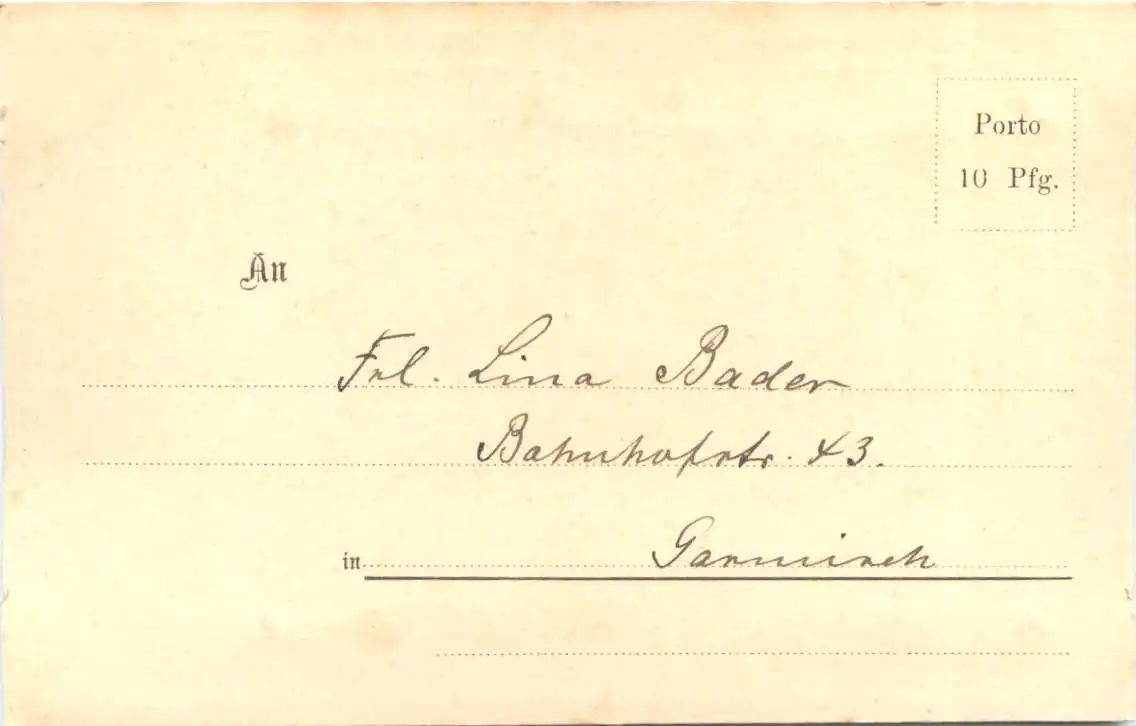 Porto
10 Pfg.
An
Frl. Lina Bader
Bahnhofstr. 43.
in Garmisch